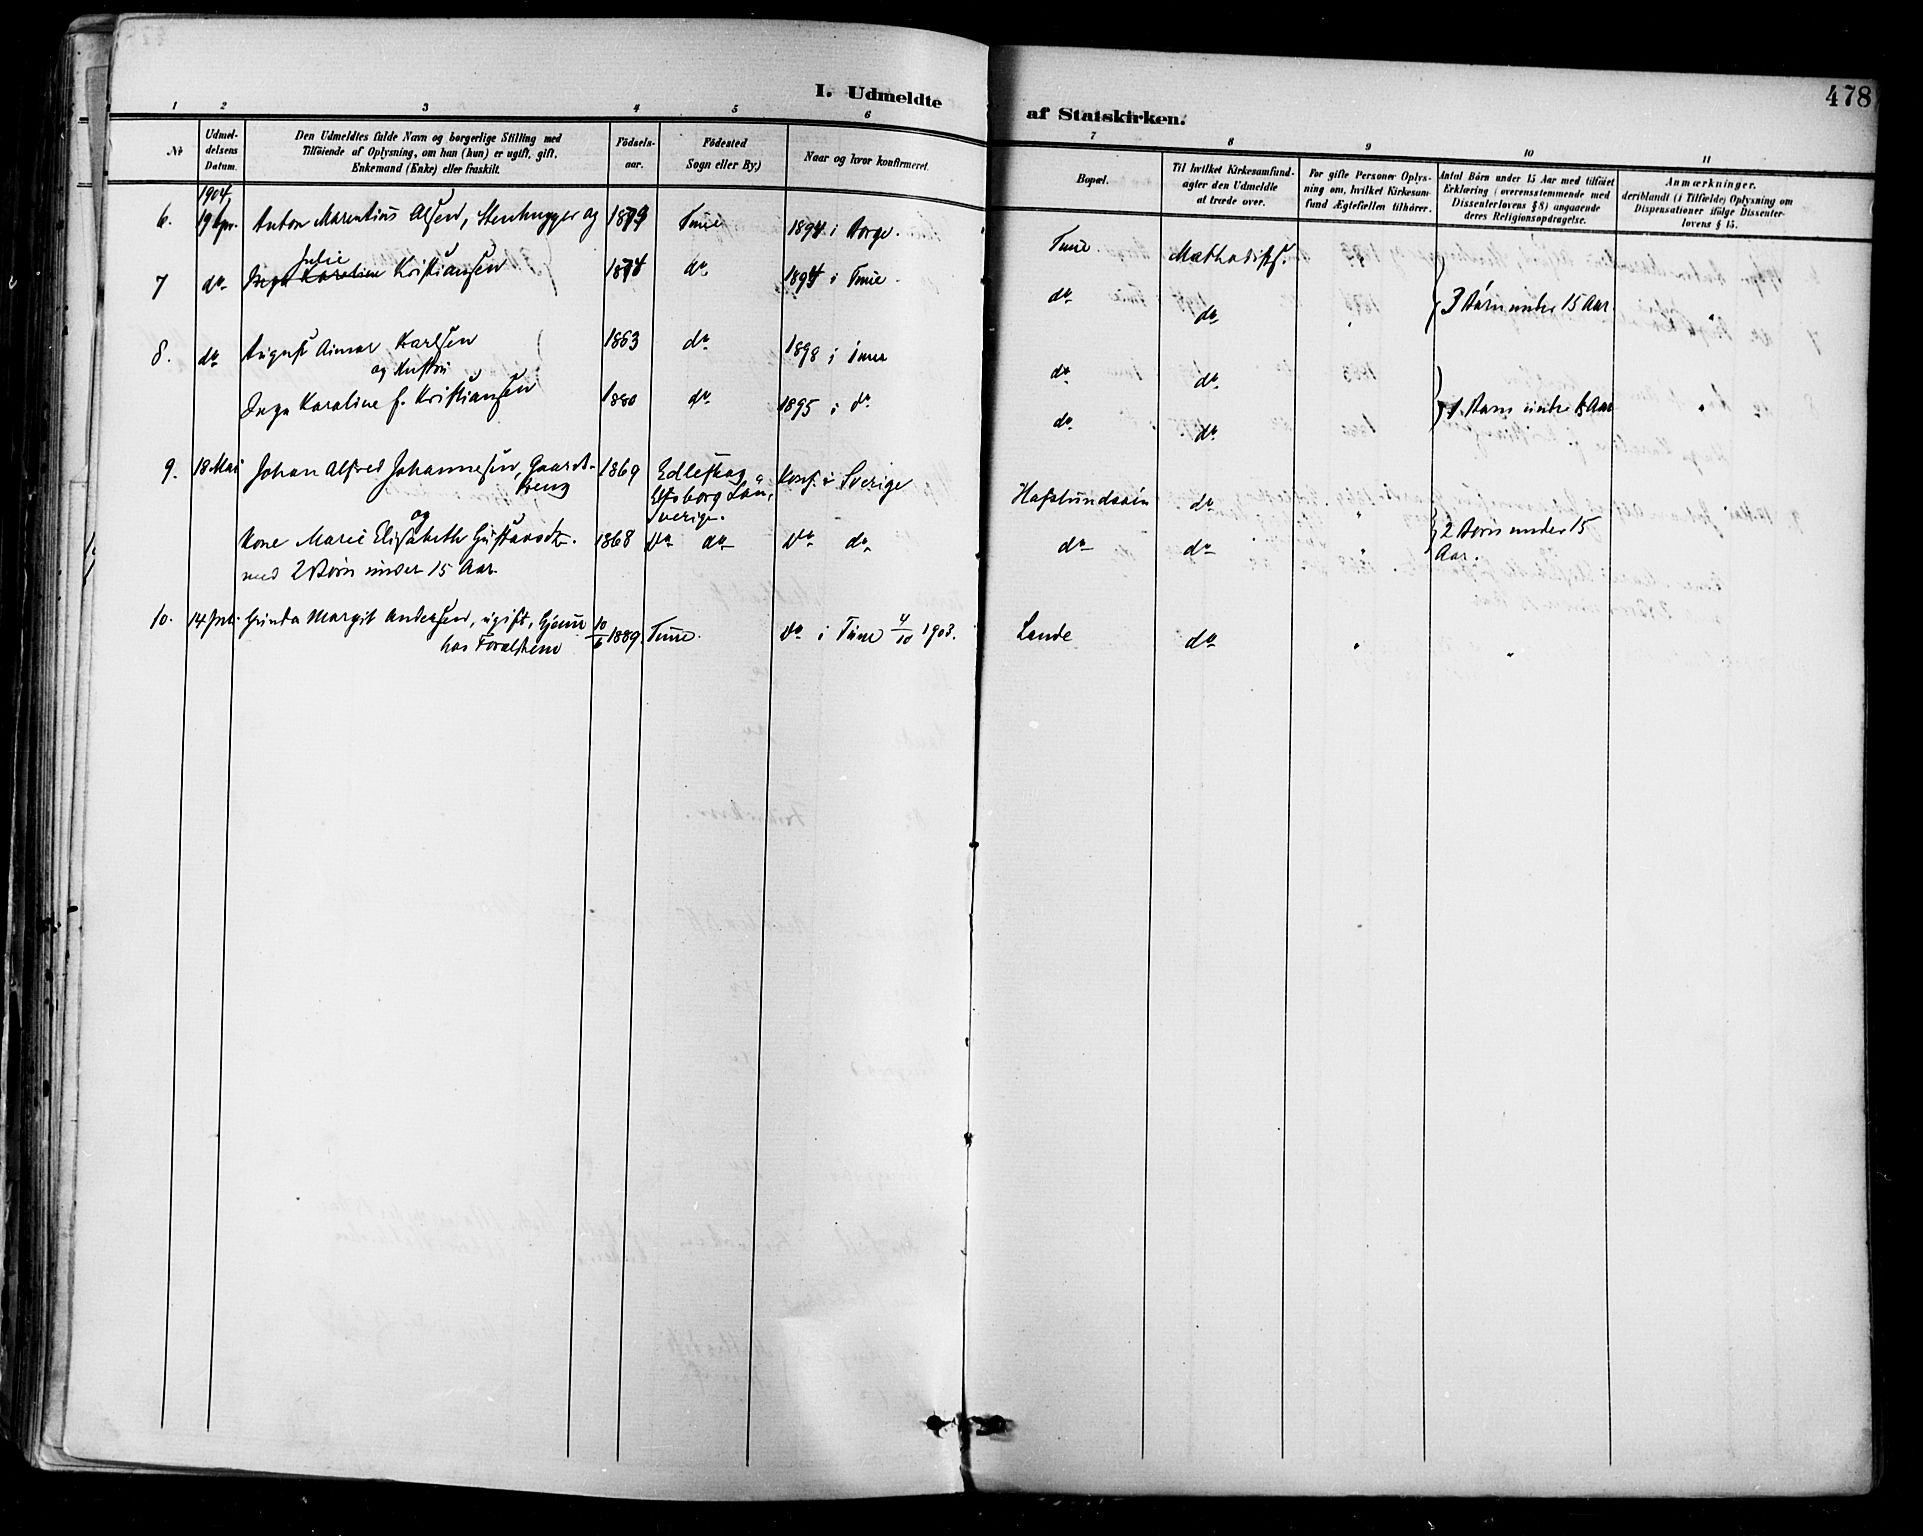 478
I. Udmeldte af Statskirken.
1 2 3 4 5 6 7 8 9 10 11
Nr
Udmel-
delsens
Datum.
Den Udmeldtes fulde Navn og borgerlige Stilling med
Tilföiende af Oplysning, om han (hun) er ugift, gift,
Enkemand (Enke) eller fraskilt.
Födsels-
aar.
Födested
Sogn eller By.)
Naar og hvor konfirmeret.
Bopæl.
Til hvilket Kirkesamfund
agter den Udmeldte
at træde over.
For gifte Personer Oplys-
ning om, hvilket Kirkesam-
fund Ægtefællen tilhörer.
Antal Börn under 15 Aar med tilföiet
Erklæring (overensstemmende med
Dissenterlovens § 8) angaaende
deres Religionsopdragelse.
Anmærkninger.
deriblandt (i Tilfælde) Oplysning om
Dispensationer ifölge Dissenter-
lovens § 15.
1904
6. 19 Apr. Anton Marentius Olsen, Stenhugger og 1879 Tune 1894 i Borge. Tune. Methodistk.
Julie
7 do Inga Karoline Kristiansen 1874 do 1894 i Tune do do " 3 Børn under 15 Aar. "
8. do August Karlsen 1863 do 1898 i Tune do do
og Hustru
Inga Karoline f. Kristiansen 1880 do 1895 i do do do 1 Barn under 15 Aar "
9. 18 Mai Johan Alfred Johannesen, Gaards- 1869 Edleskog Konf. i Sverige Hafslundsøen do "
Elfsborg Län,
Sverige.
og
Kone Marie Elisabeth Gustavsdtr. 1868 do do do do do do " 2 Børn under 15
Aar.
med 2 Børn under 15 Aar
10. 14 Margit Andersen, ugift, Hjemme 10/6 1889. Tune. do i Tune 4/10 1903. Lande do " "
hos Forældrene